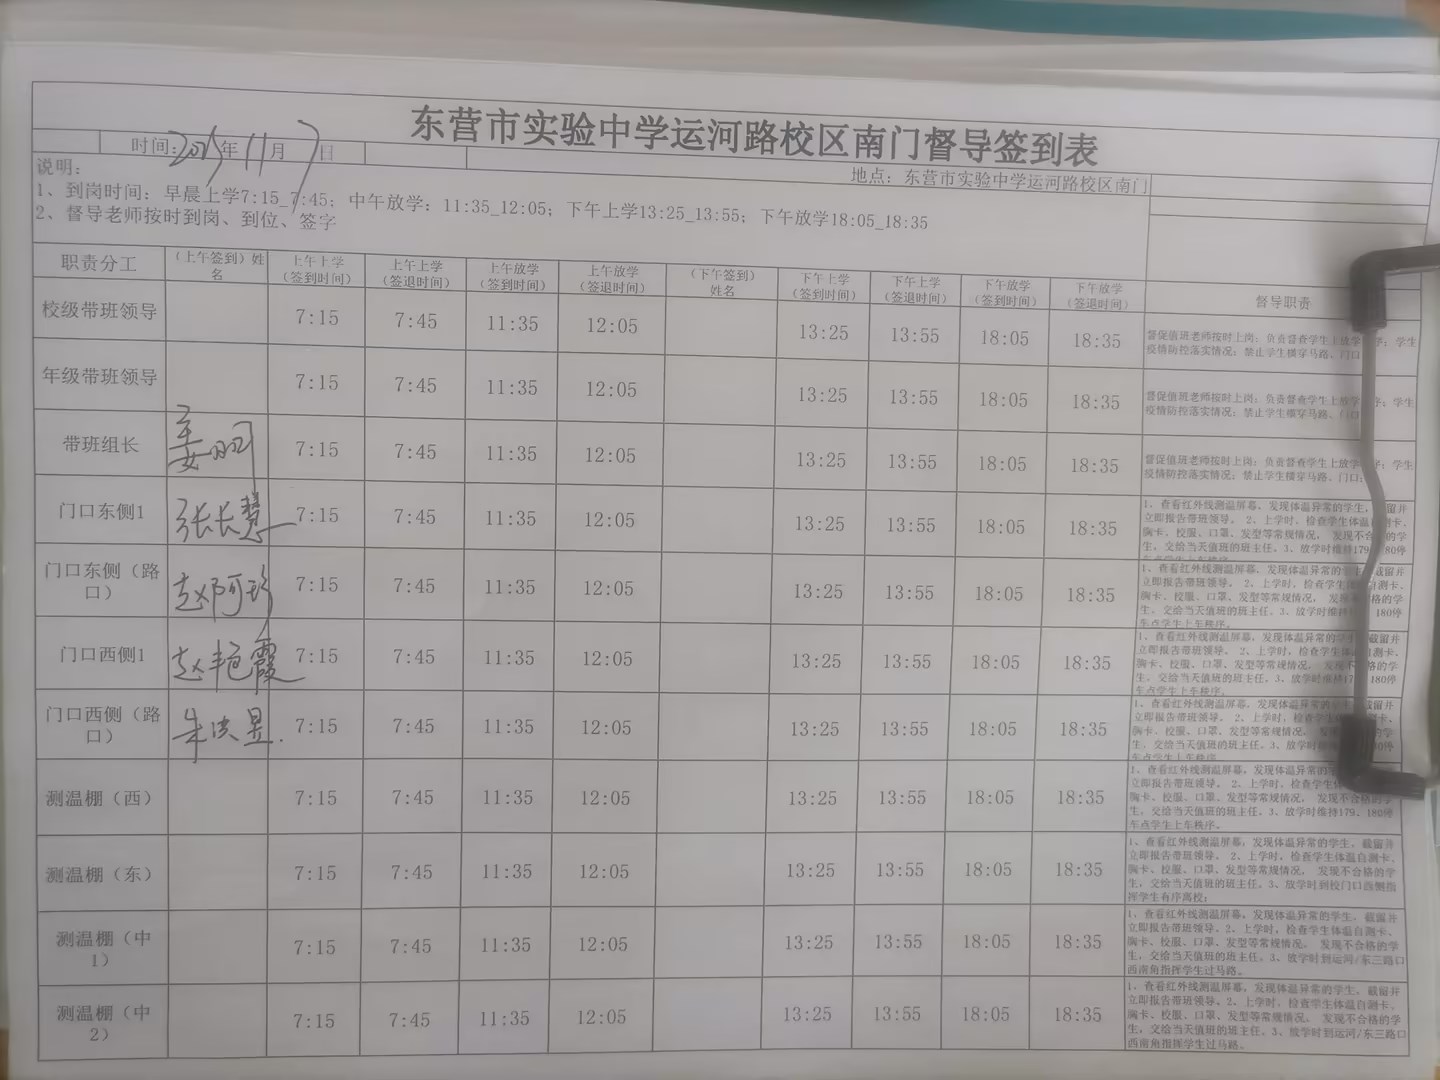 东营市实验中学运河路校区南门督导签到表
时间: 年11月7日
地点：东营市实验中学运河路校区南门
说明：
1、到岗时间：早晨上学7:15_7:45；中午放学：11:35_12:05；下午上学13:25_13:55；下午放学18:05_18:35
2、督导老师按时到岗、到位、签字
职责分工 （上午签到）姓名 上午上学（签到时间） 上午上学（签退时间） 上午放学（签到时间） 上午放学（签退时间） （下午签到）姓名 下午上学（签到时间） 下午上学（签退时间） 下午放学（签到时间） 下午放学（签退时间） 督导职责
校级带班领导 7:15 7:45 11:35 12:05 13:25 13:55 18:05 18:35
督促值班老师按时上岗；负责督查学生上放学 序；学生
疫情防控落实情况；禁止学生横穿马路、门口
年级带班领导 7:15 7:45 11:35 12:05 13:25 13:55 18:05 18:35
督促值班老师按时上岗；负责督查学生上放学 序；学生
疫情防控落实情况；禁止学生横穿马路、门口
带班组长 姜明 7:15 7:45 11:35 12:05 13:25 13:55 18:05 18:35
督促值班老师按时上岗；负责督查学生上放学 序；学生
疫情防控落实情况；禁止学生横穿马路、门口
门口东侧1 张长慧 7:15 7:45 11:35 12:05 13:25 13:55 18:05 18:35
1、查看红外线测温屏幕，发现体温异常的学生， 留并
立即报告带班领导。 2、上学时，检查学生体温自测卡、
胸卡、校服、口罩、发型等常规情况， 发现不合 的学
生，交给当天值班的班主任。3、放学时维持179、 80停
车点学生上车秩序。
门口东侧（路口） 赵阿珍 7:15 7:45 11:35 12:05 13:25 13:55 18:05 18:35
1、查看红外线测温屏幕，发现体温异常的学生， 截留并
立即报告带班领导。 2、上学时，检查学生体 自测卡、
胸卡、校服、口罩、发型等常规情况， 发现 合格的学
生，交给当天值班的班主任。3、放学时维持 180停
车点学生上车秩序。
门口西侧1 赵艳霞 7:15 7:45 11:35 12:05 13:25 13:55 18:05 18:35
1、查看红外线测温屏幕，发现体温异常的学生， 截留并
立即报告带班领导。 2、上学时，检查学生体 自测卡、
胸卡、校服、口罩、发型等常规情况， 发现 合格的学
生，交给当天值班的班主任。3、放学时维持179 180停
车点学生上车秩序。
门口西侧（路口） 朱 昱 7:15 7:45 11:35 12:05 13:25 13:55 18:05 18:35
1、查看红外线测温屏幕，发现体温异常的学生， 截留并
立即报告带班领导。 2、上学时，检查学生体 测卡、
胸卡、校服、口罩、发型等常规情况， 发现 的学
生，交给当天值班的班主任。3、放学时 停
车点学生上车秩序。
测温棚（西） 7:15 7:45 11:35 12:05 13:25 13:55 18:05 18:35
1、查看红外线测温屏幕，发现体温异常的 留并
立即报告带班领导。 2、上学时，检查学生体 卡、
胸卡、校服、口罩、发型等常规情况， 发现不合格的学
生，交给当天值班的班主任。3、放学时维持179、180停
车点学生上车秩序。
测温棚（东） 7:15 7:45 11:35 12:05 13:25 13:55 18:05 18:35
1、查看红外线测温屏幕，发现体温异常的学生，截留并
立即报告带班领导。 2、上学时，检查学生体温自测卡、
胸卡、校服、口罩、发型等常规情况， 发现不合格的学
生，交给当天值班的班主任。3、放学时到校门口西侧指
挥学生有序离校；
测温棚（中1） 7:15 7:45 11:35 12:05 13:25 13:55 18:05 18:35
1、查看红外线测温屏幕，发现体温异常的学生，截留并
立即报告带班领导。2、上学时，检查学生体温自测卡、
胸卡、校服、口罩、发型等常规情况， 发现不合格的学
生，交给当天值班的班主任。3、放学时到运河/东三路口
西南角指挥学生过马路。
测温棚（中2） 7:15 7:45 11:35 12:05 13:25 13:55 18:05 18:35
1、查看红外线测温屏幕，发现体温异常的学生，截留并
立即报告带班领导。2、上学时，检查学生体温自测卡、
胸卡、校服、口罩、发型等常规情况， 发现不合格的学
生，交给当天值班的班主任。3、放学时到运河/东三路口
西南角指挥学生过马路。